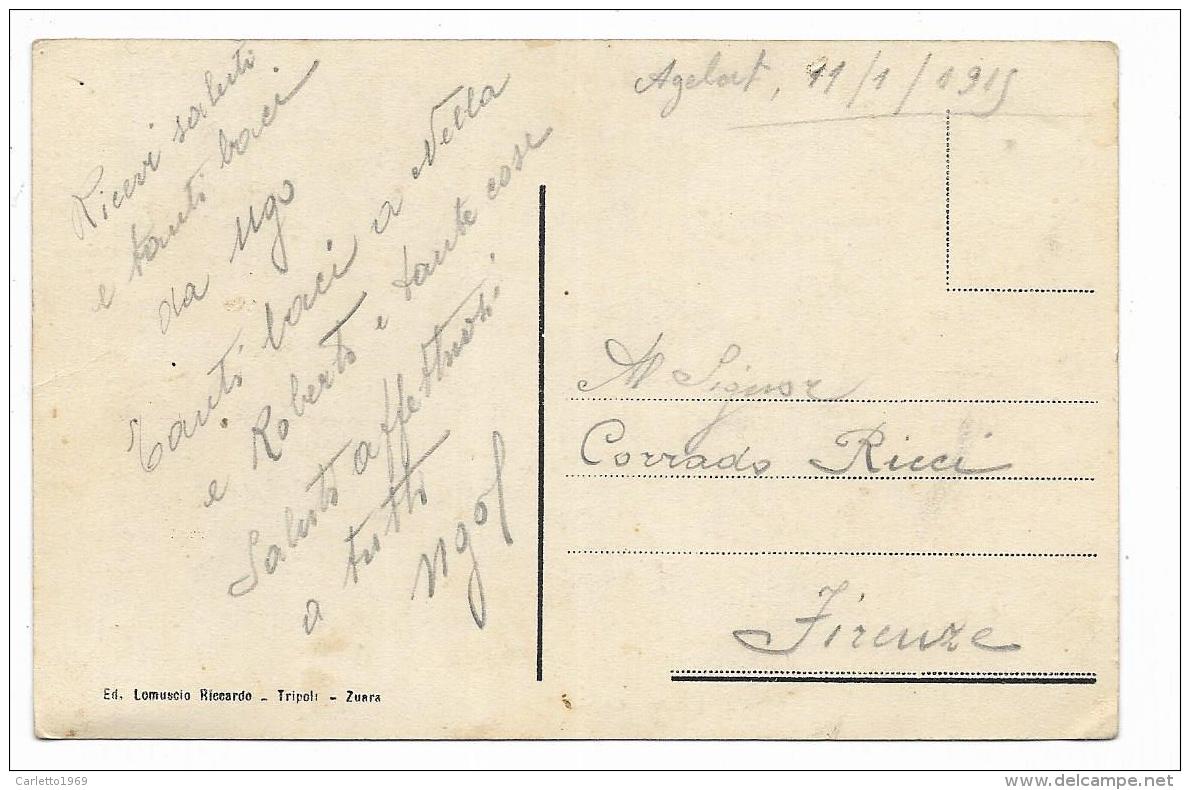 Agelat, 11/1/1915
Ricevi saluti
e tanti baci
da Ugo
Tanti baci a Nella
e Roberto e tante cose
Saluti affettuosi
a tutti
Ugo
Al Signor
Corrado Ricci
Firenze
Ed. Lomuscio Riccardo - Tripoli - Zuara
Carletto1969
delcampe.net